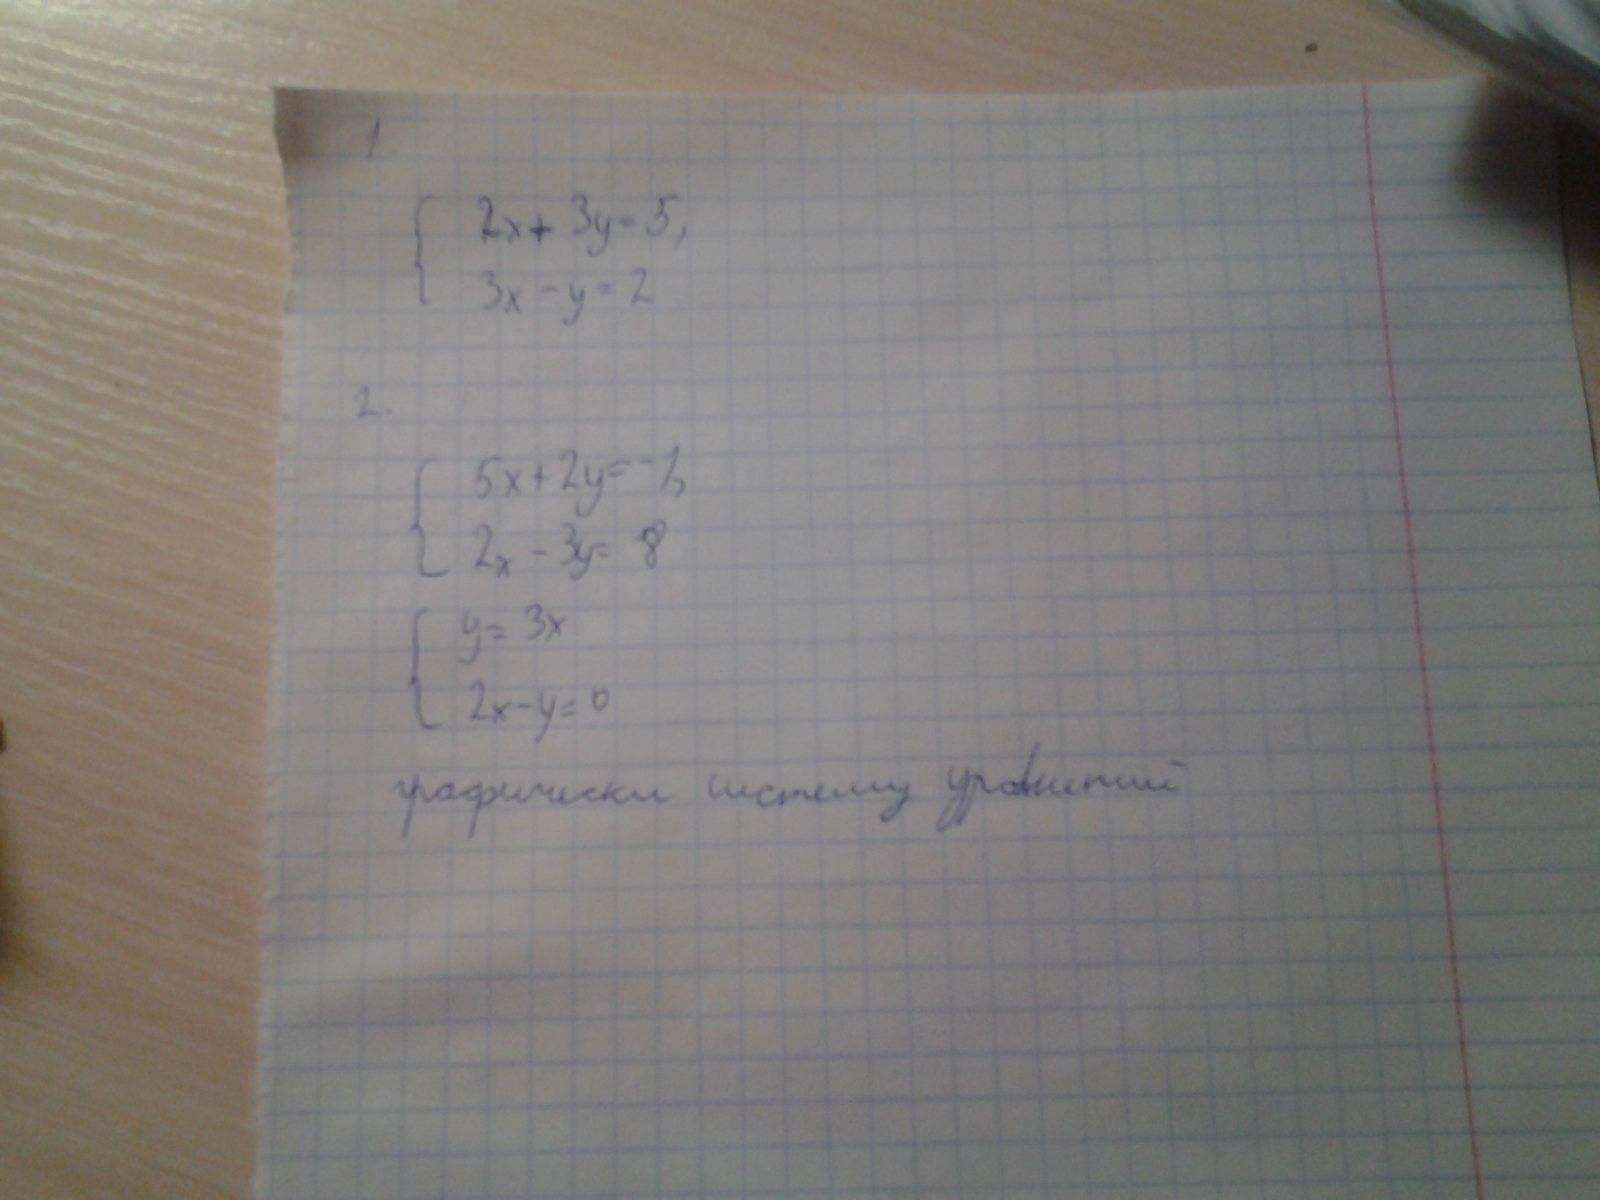 1
2x + 3y = 5,
3x - y = 2
2.
5x + 2y = -1,
2x - 3y = 8
y = 3x
2x - y = 0
графически систему уравнений